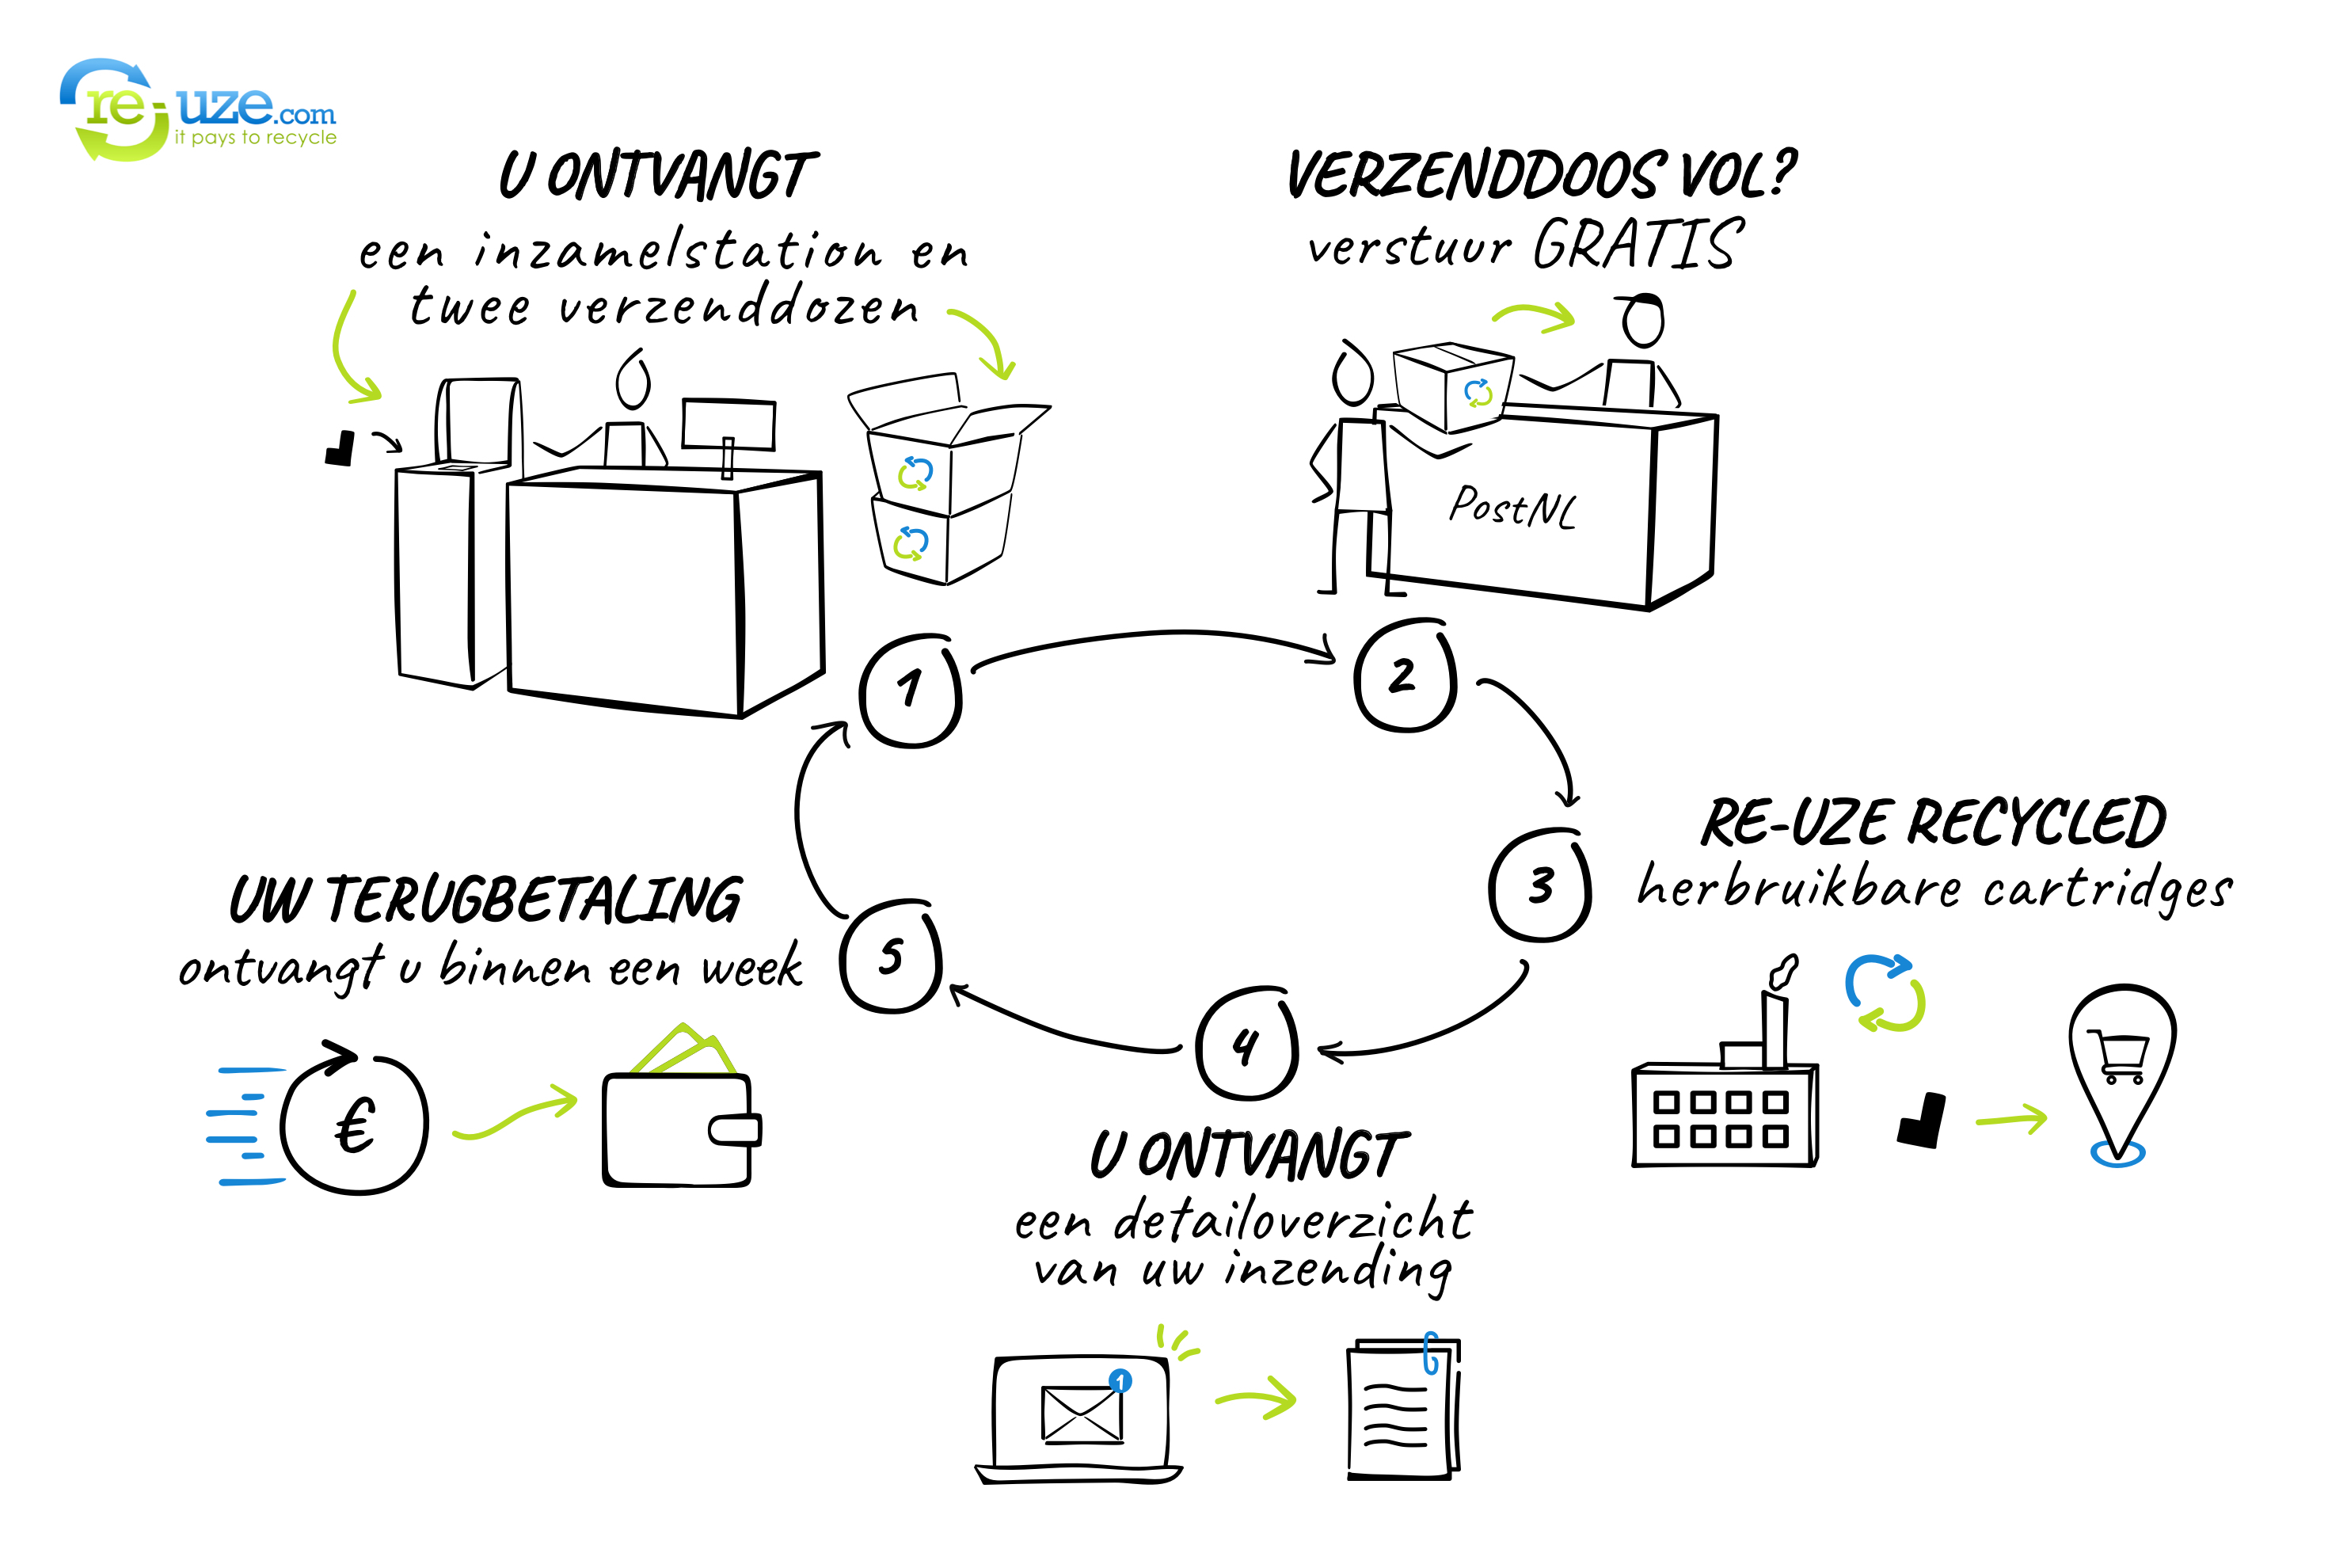 re-uze.com
it pays to recycle
U ONTVANGT
een inzamelstation en
twee verzenddozen
VERZENDDOOS VOL?
verstuur GRATIS
PostNL
1
2
3
RE-UZE RECYCLED
herbruikbare cartridges
4
U ONTVANGT
een detailoverzicht
van uw inzending
1
5
UW TERUGBETALING
ontvangt u binnen een week
€